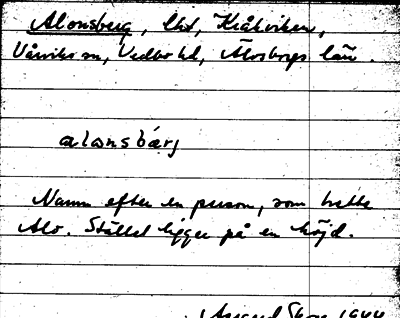 Alonsberg, lht, Kråkviken,
Vårviks sn, Vedbo hd, Älvsborgs län.
alonsbærj
Namn efter en person, som hette
Alo. Stället ligger på en höjd.
1944